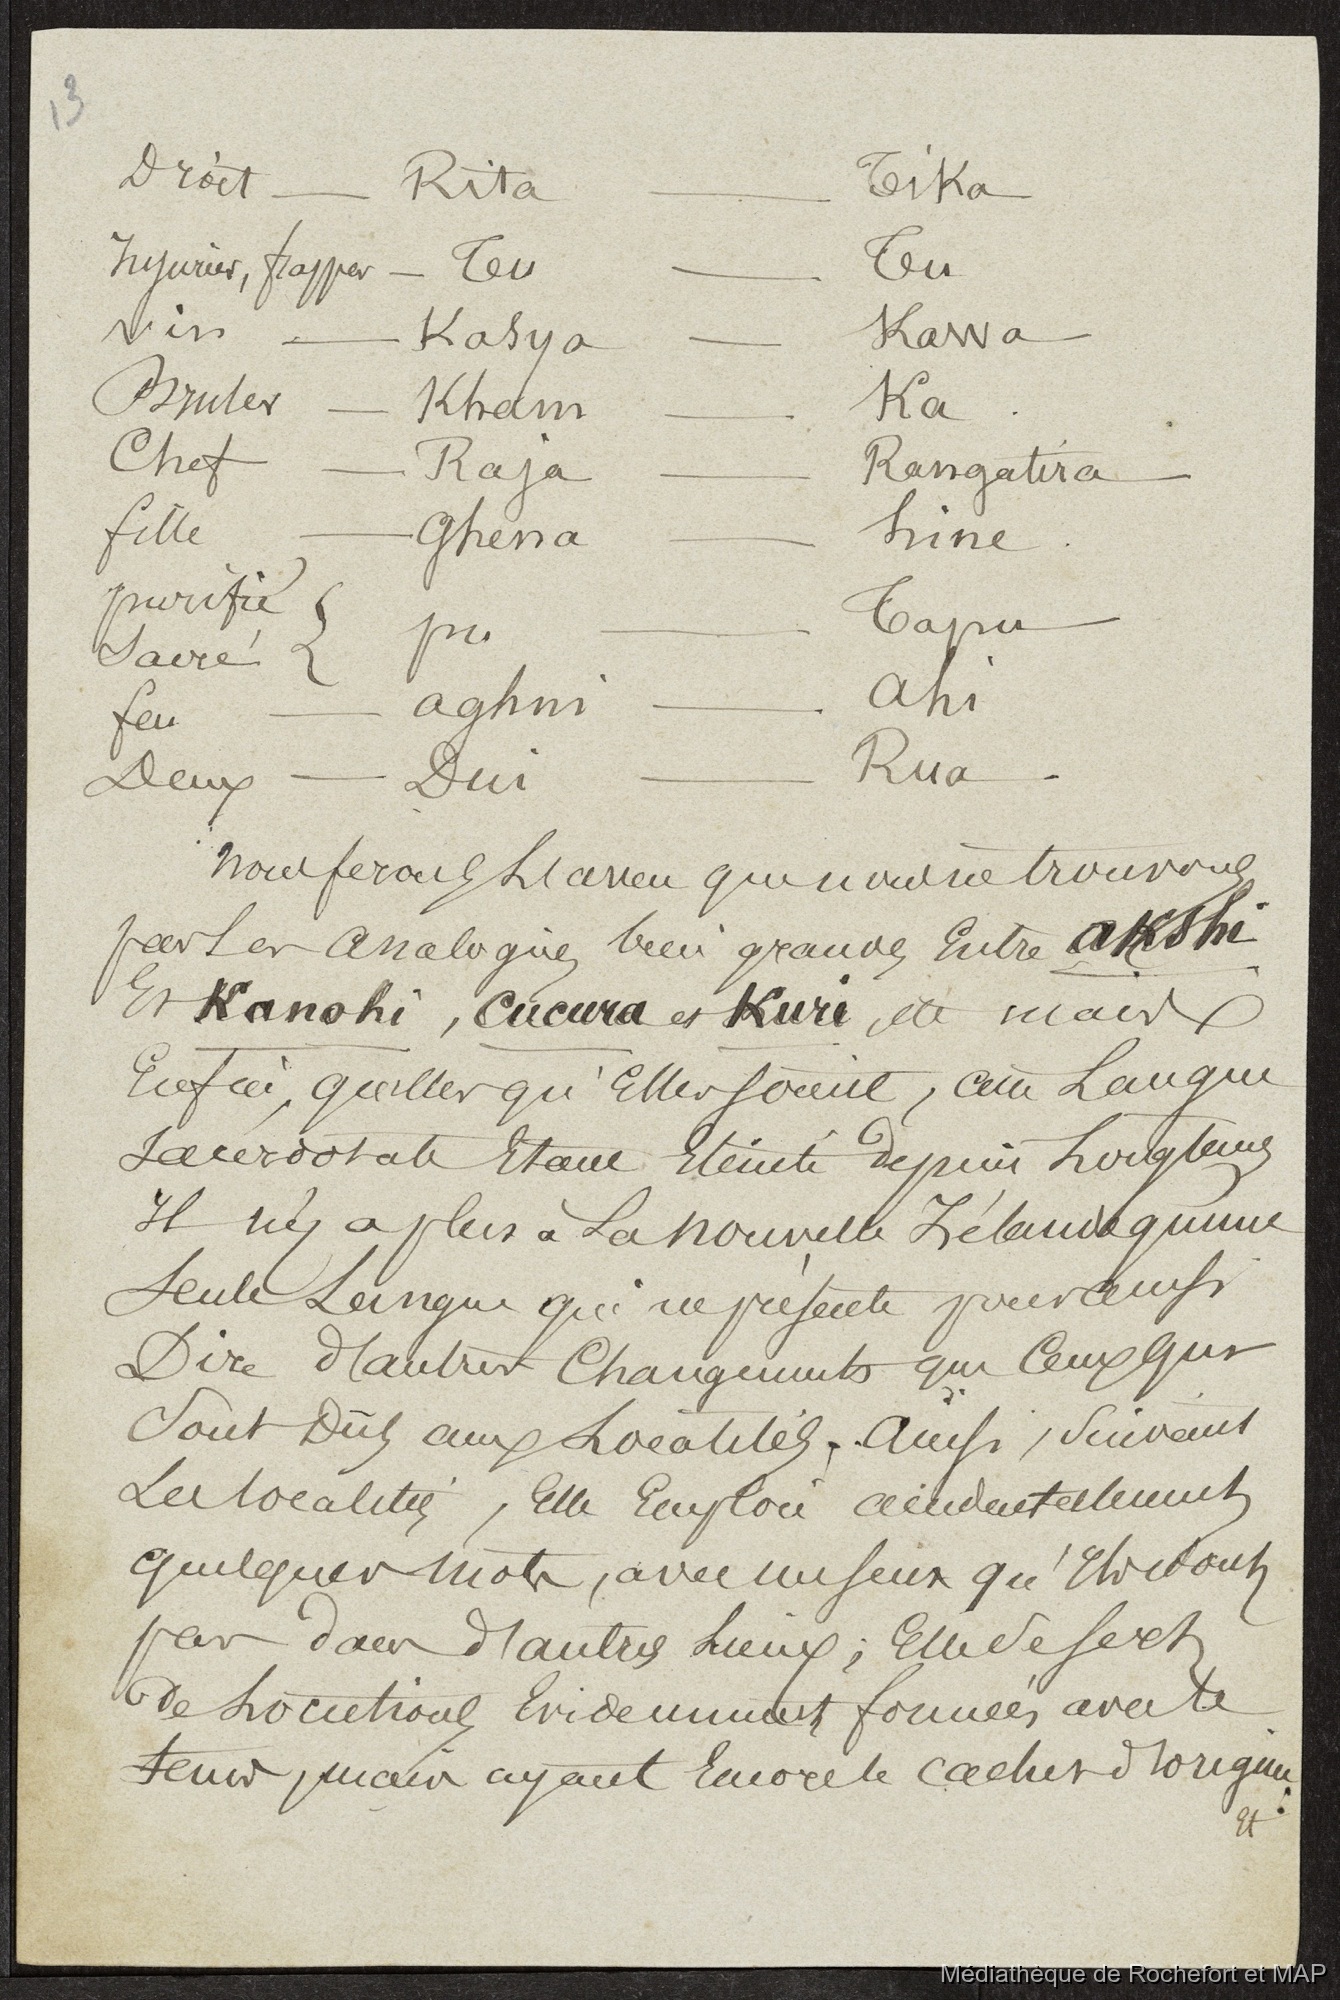 13
Droit — Rita — Tika
Injurier, frapper — Tu — Tu
vin — Kasya — Kawa
Bruler — Kham — Ka.
Chef — Raja — Rangatira
fille — Ghena — hine.
purifié
Sacré } pu — Tapu
feu — aghni — ahi
Deux — Dui — Rua.
nous ferons L'aveu que nous ne trouvons
pas Les analogies bien grandes Entre akshi
Et Kanohi, cucura et Kuri, etc mais
Enfin, quelles qu'Elles soient, cette Langue
sacerdotale Etant Eteinte depuis Longtems
Il n'y a plus à La nouvelle Zélande qu'une
seule Langue qui ne présente pour ainsi
Dire d'autres Changements que Ceux qui
sont Dûs aux Localités. Ainsi, suivant
Les localités, Elle Emploie accidentellement
quelques mots, avec un sens qu'ils n'ont
pas dans d'autres Lieux; Elle se sert
de Locutions Evidemment formées avec le
tems, mais ayant Encore le cachet d'origine.
Et
Médiathèque de Rochefort et MAP